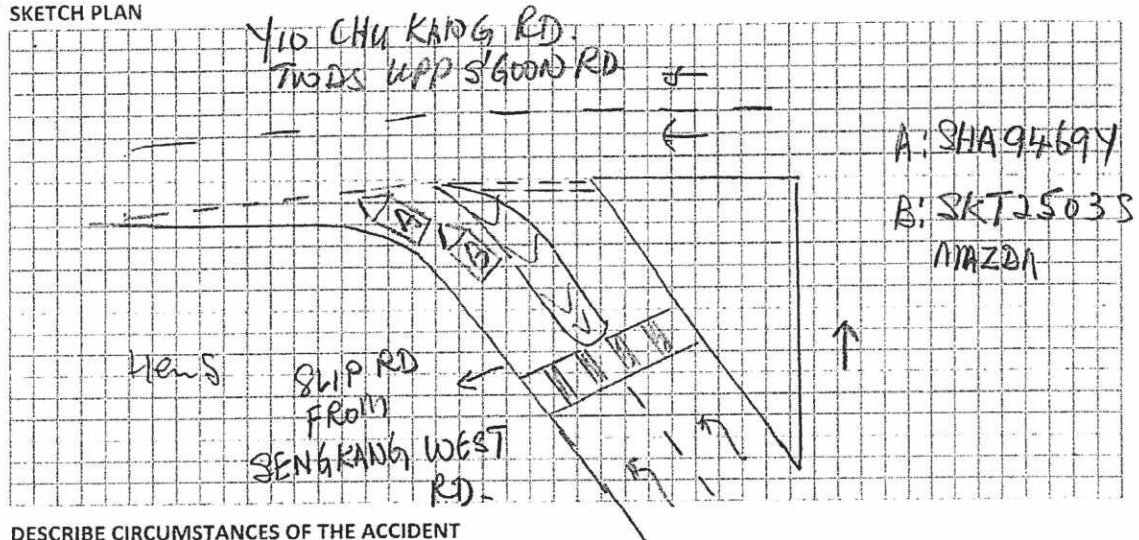 SKETCH PLAN
YIO CHU KANG RD.
TWDS UPP S'GOON RD
A: SHA9469Y
B: SKT2503S
MAZDA
A
B
SLIP RD
FROM
SENGKANG WEST
RD.
DESCRIBE CIRCUMSTANCES OF THE ACCIDENT